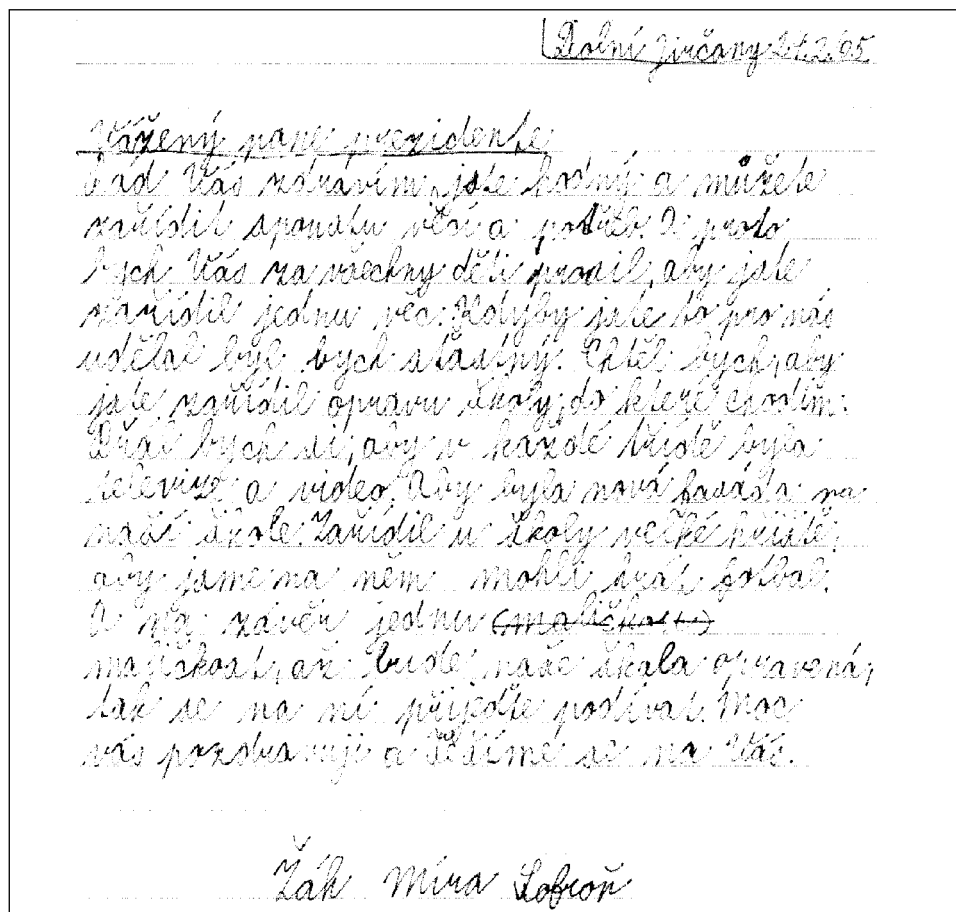 Dolní Jirčany 21.2.05.
Vážený pane prezidente
Rád Vás zdravím, jste hodný a můžete
zařídit spoustu věcí a potřeb. A proto
bych Vás za všechny děti prosil, aby jste
zařídil jednu věc. Kdyby jste to pro nás
udělal byl bych šťastný. Chtěl bych, aby
jste zařídil opravu školy, do které chodím.
Přál bych si, aby v každé třídě byla
televize a video. Aby byla nová fasáda na
naší škole. Zařídil u školy velké hřiště,
aby jsme na něm mohli hrát fotbal.
A na závěr jednu (maličkost)
maličkost, až bude naše škola opravená,
tak se na ní přijeďte podívat. Moc
vás pozdravuji a těšíme se na Vás.
Žák Míra